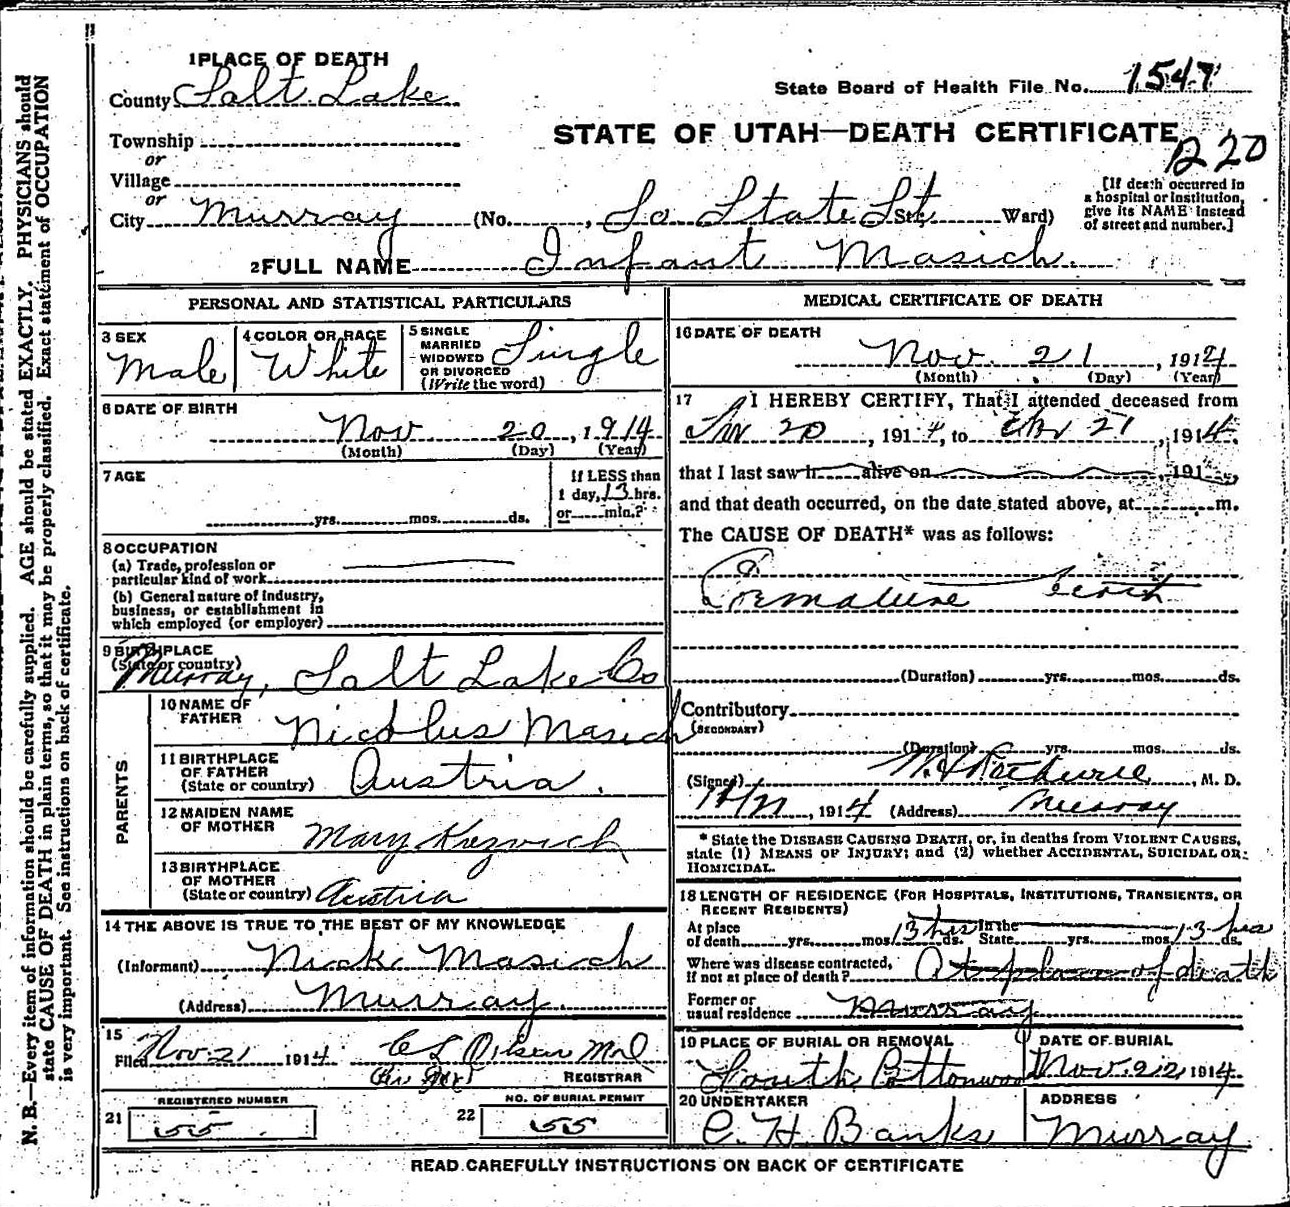 1 PLACE OF DEATH
County Salt Lake
State Board of Health File No. 1547
STATE OF UTAH—DEATH CERTIFICATE
B 20
Township
or
Village
or
City Murray (No. , So State St St., Ward)
[If death occurred in a hospital or institution, give its NAME instead of street and number.]
2 FULL NAME Infant Masich.
PERSONAL AND STATISTICAL PARTICULARS
3 SEX
Male
4 COLOR OR RACE
White
5 SINGLE
MARRIED
WIDOWED
OR DIVORCED
(Write the word)
Single
6 DATE OF BIRTH
Nov 20, 1914
(Month) (Day) (Year)
7 AGE
yrs. mos. ds.
If LESS than
1 day, 13 hrs.
or min.?
8 OCCUPATION
(a) Trade, profession or
particular kind of work
(b) General nature of industry,
business, or establishment in
which employed (or employer)
9 BIRTHPLACE
(State or country)
Murray, Salt Lake Co
PARENTS
10 NAME OF
FATHER
Nicolus Masich
11 BIRTHPLACE
OF FATHER
(State or country)
Austria.
12 MAIDEN NAME
OF MOTHER
Mary
13 BIRTHPLACE
OF MOTHER
(State or country)
Austria
14 THE ABOVE IS TRUE TO THE BEST OF MY KNOWLEDGE
(Informant) Nick Masich
(Address) Murray
15
Filed Nov 21 1914 C L Olsen M D
REGISTRAR
21
REGISTERED NUMBER
55
22
NO. OF BURIAL PERMIT
55
MEDICAL CERTIFICATE OF DEATH
16 DATE OF DEATH
Nov. 21, 1914
(Month) (Day) (Year)
17 I HEREBY CERTIFY, That I attended deceased from
Nov 20, 1914, to Nov 21, 1914.
that I last saw h alive on , 191 ,
and that death occurred, on the date stated above, at m.
The CAUSE OF DEATH* was as follows:
Premature birth
(Duration) yrs. mos. ds.
Contributory
(SECONDARY)
(Duration) yrs. mos. ds.
(Signed) , M. D.
, 1914 (Address) Murray
* State the DISEASE CAUSING DEATH, or, in deaths from VIOLENT CAUSES,
state (1) MEANS OF INJURY; and (2) whether ACCIDENTAL, SUICIDAL OR
HOMICIDAL.
18 LENGTH OF RESIDENCE (FOR HOSPITALS, INSTITUTIONS, TRANSIENTS, OR
RECENT RESIDENTS)
At place
of death yrs. mos. 13 hrs ds. In the State yrs. mos. 13 hrs ds.
Where was disease contracted,
If not at place of death? At place of death
Former or
usual residence Murray
19 PLACE OF BURIAL OR REMOVAL
South Cottonwood
DATE OF BURIAL
Nov. 22, 1914.
20 UNDERTAKER
C. H. Banks
ADDRESS
Murray
READ CAREFULLY INSTRUCTIONS ON BACK OF CERTIFICATE
N. B.—Every item of information should be carefully supplied. AGE should be stated EXACTLY. PHYSICIANS should
state CAUSE OF DEATH in plain terms, so that it may be properly classified. Exact statement of OCCUPATION
is very important. See instructions on back of certificate.